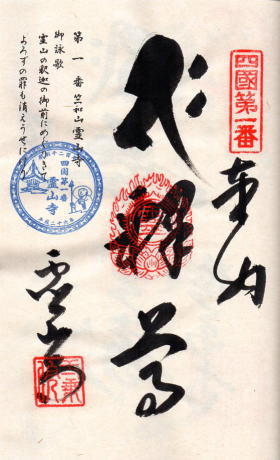 四國第一番
奉納
釋尊
霊山寺
第一番竺和山霊山寺
御詠歌
霊山の釈迦の御前にめぐりきて
よろずの罪も消えうせにけり
四国第一番
霊山寺